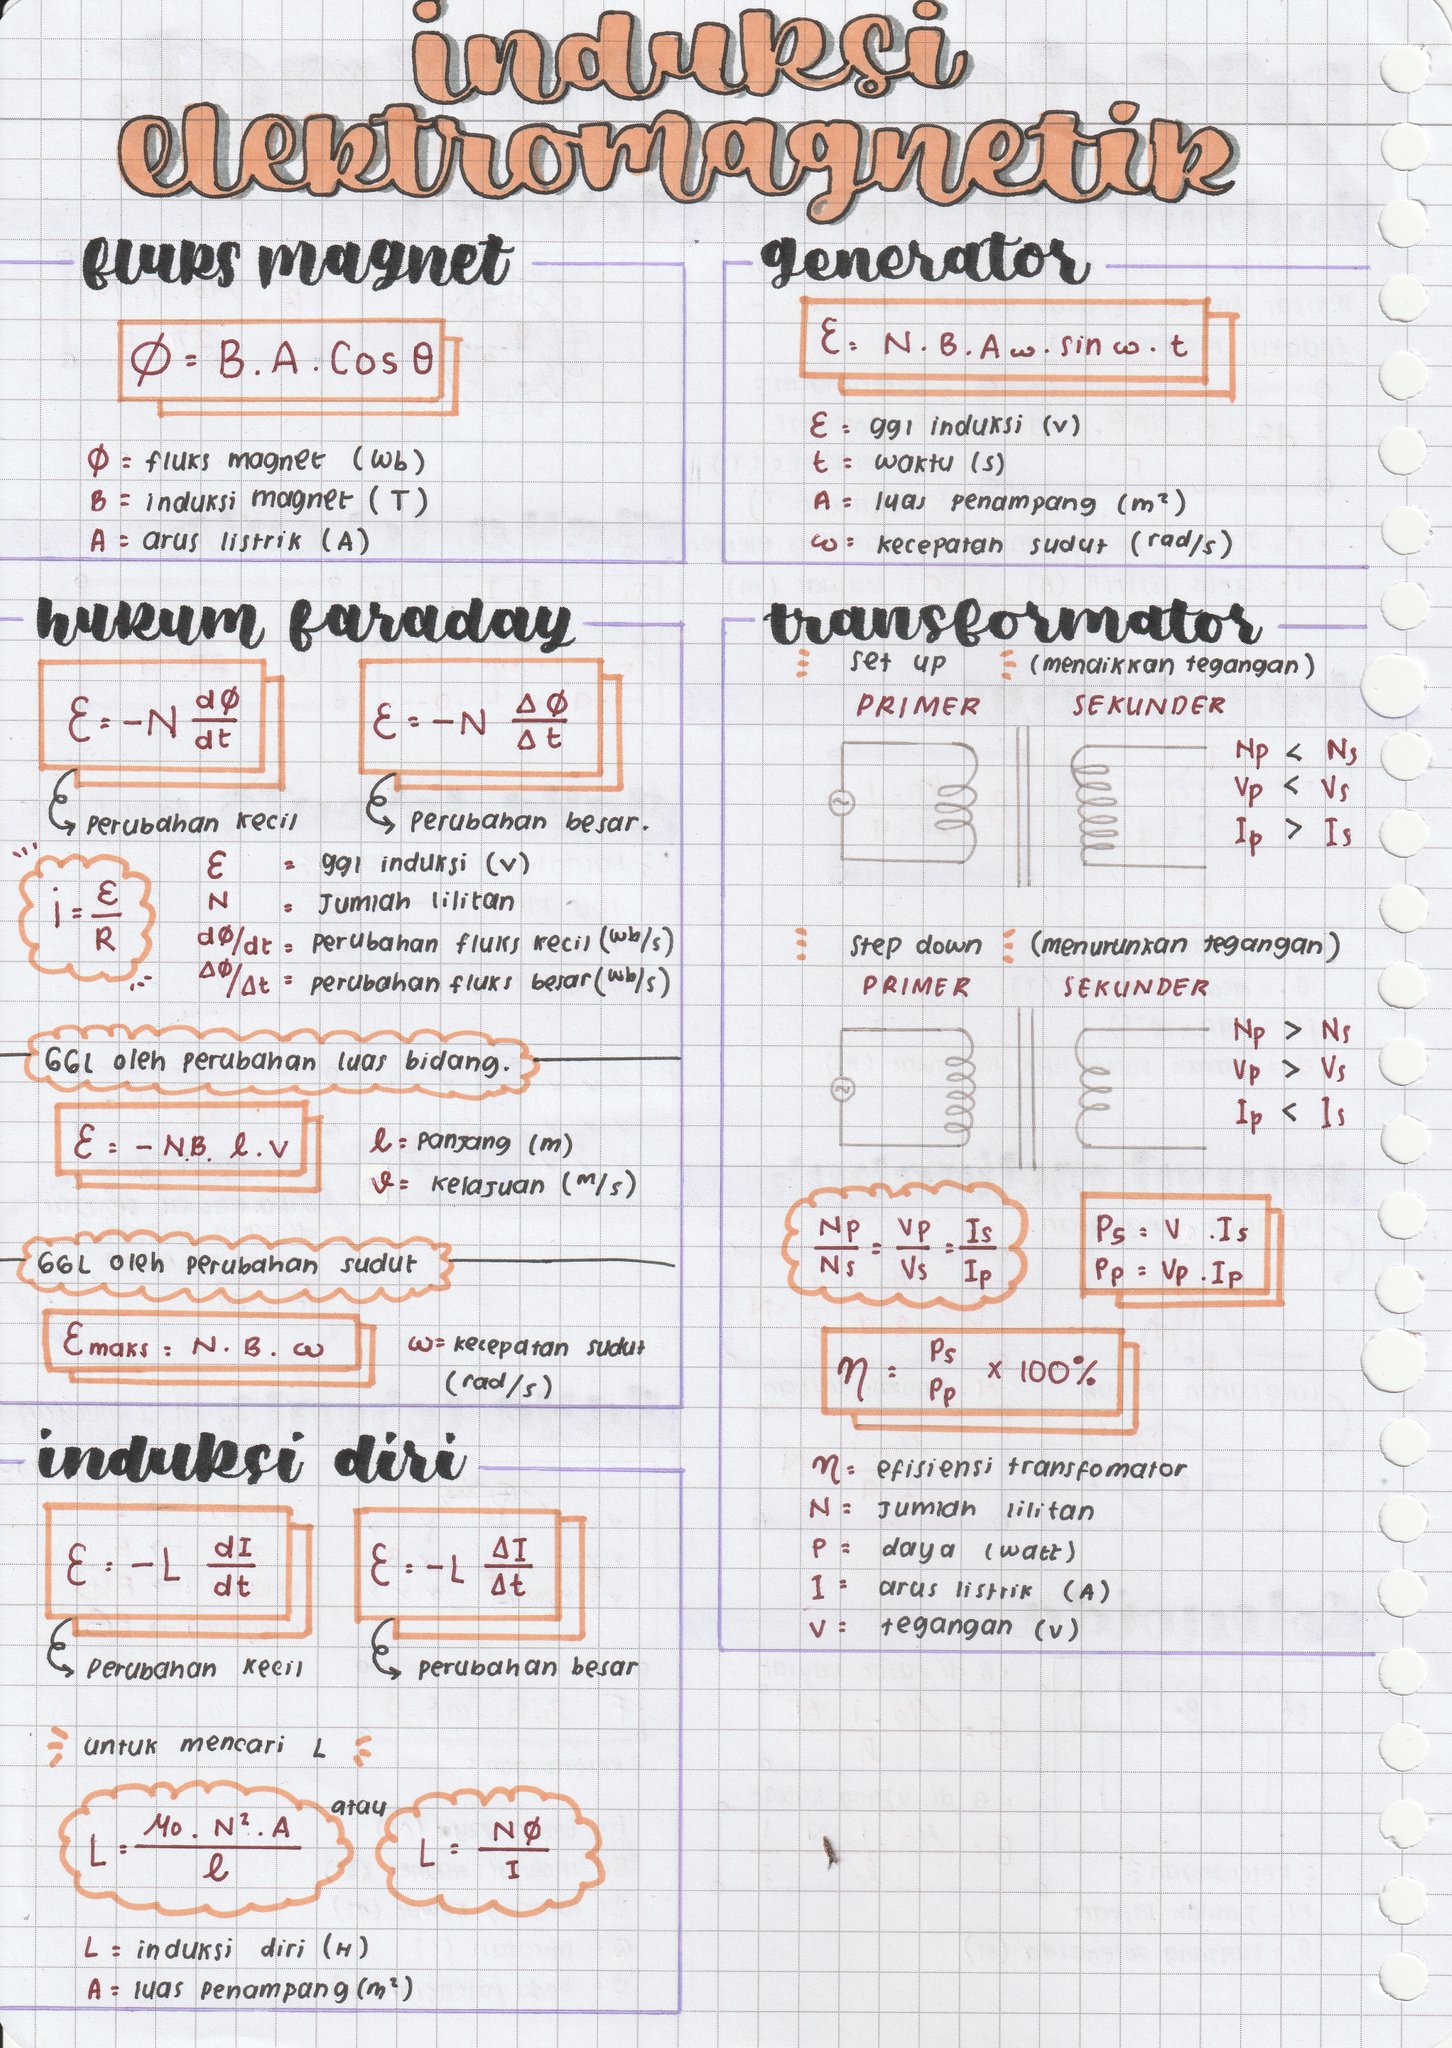 induksi
elektromagnetik
fluks magnet
Ø = B . A . Cos θ
Ø = fluks magnet (Wb)
B = induksi magnet (T)
A = arus listrik (A)
hukum faraday
Ɛ = -N dØ/dt
perubahan kecil
Ɛ = -N ΔØ/Δt
perubahan besar.
i = Ɛ/R
Ɛ = ggl induksi (v)
N = Jumlah lilitan
dØ/dt = perubahan fluks kecil (wb/s)
ΔØ/Δt = perubahan fluks besar (wb/s)
GGL oleh perubahan luas bidang.
Ɛ = - N.B. ℓ . v
ℓ = panjang (m)
v = kelajuan (m/s)
GGL oleh perubahan sudut
Ɛmaks = N . B . ω
ω = kecepatan sudut
(rad/s)
induksi diri
Ɛ = -L dI/dt
perubahan kecil
Ɛ = -L ΔI/Δt
perubahan besar
untuk mencari L
L = Mo . N² . A / ℓ
atau
L = NØ / I
L = induksi diri (H)
A = luas penampang (m²)
generator
Ɛ = N . B . A ω . sin ω . t
Ɛ = ggl induksi (v)
t = waktu (s)
A = luas penampang (m²)
ω = kecepatan sudut (rad/s)
transformator
set up (mendikkan tegangan)
PRIMER SEKUNDER
Np < Ns
Vp < Vs
Ip > Is
step down (menurunkan tegangan)
PRIMER SEKUNDER
Np > Ns
Vp > Vs
Ip < Is
Np/Ns = Vp/Vs = Is/Ip
Ps = V . Is
Pp = Vp . Ip
η = Ps/Pp x 100%
η = efisiensi transfomator
N = Jumlah lilitan
P = daya (watt)
I = arus listrik (A)
V = tegangan (v)